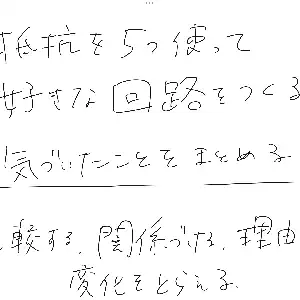 抵抗を5つ使って
好きな回路をつくる
気づいたことをまとめる
較する、関係づける、理由
変化をとらえる、